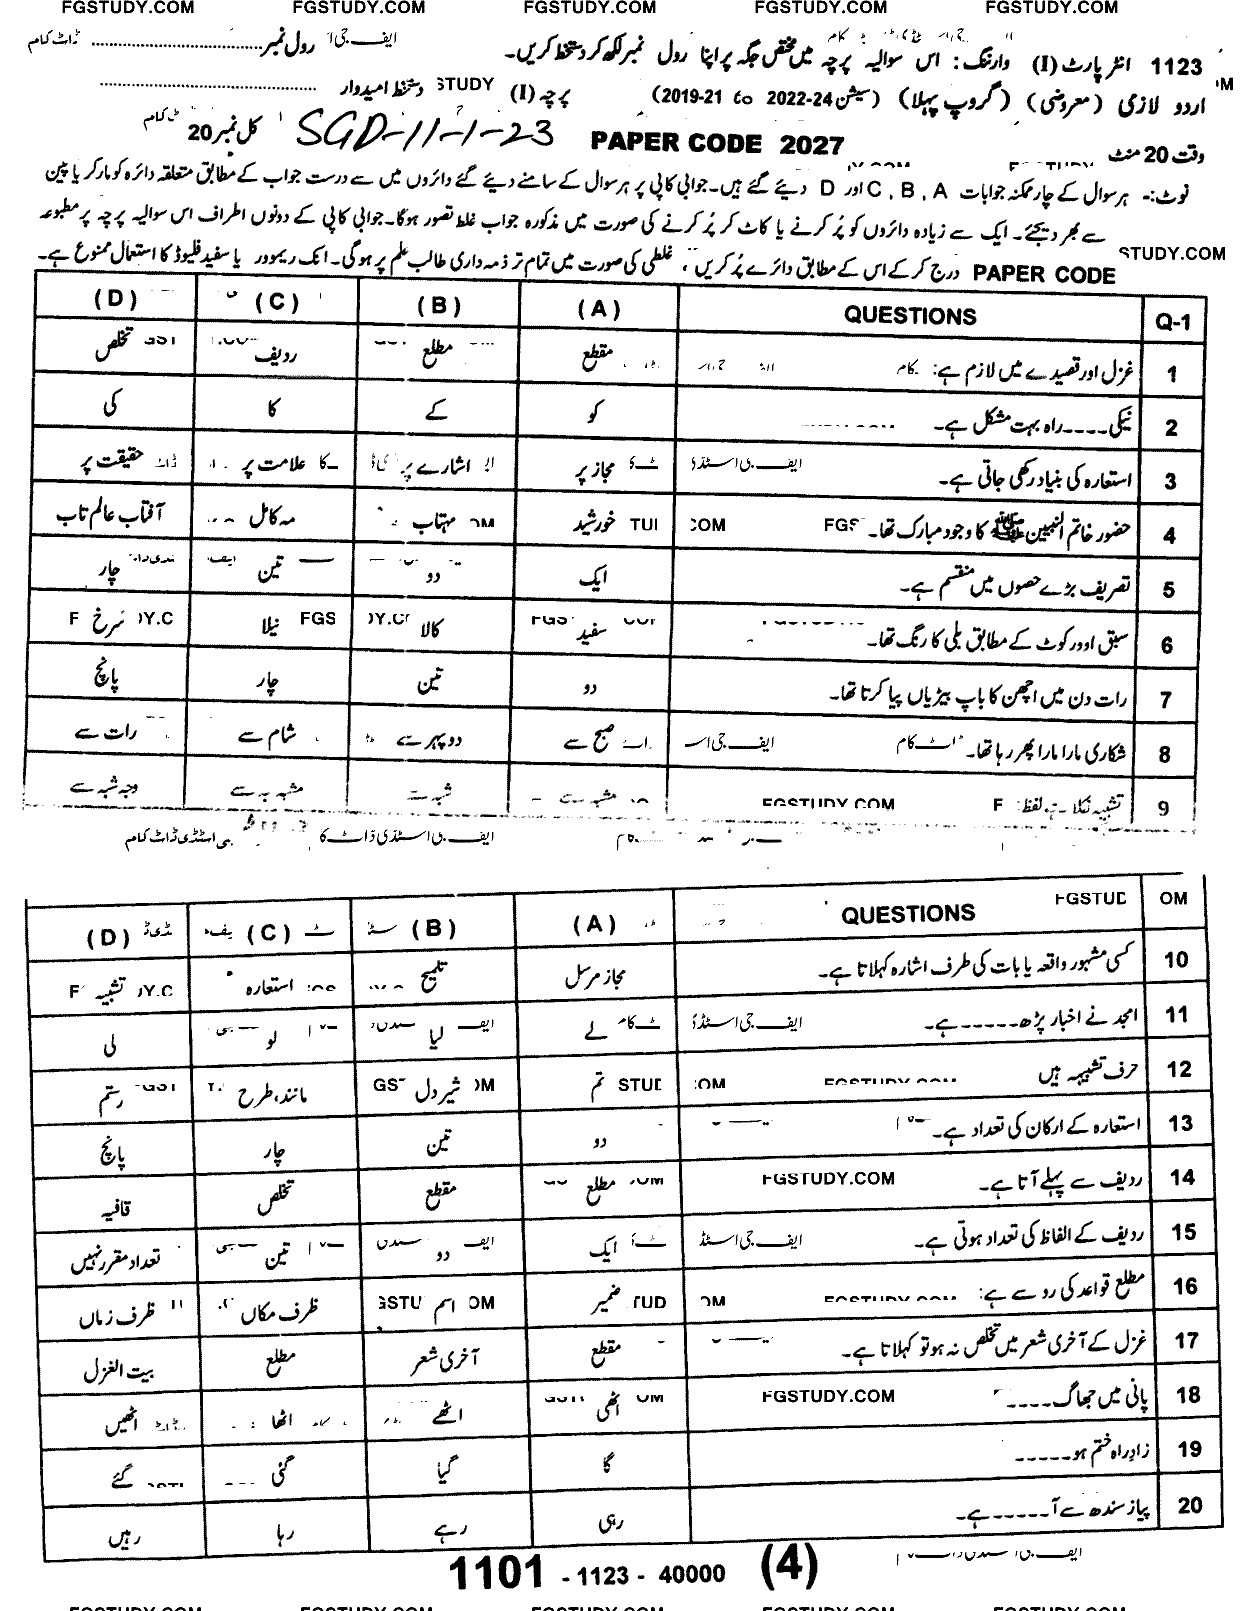 FGSTUDY.COM FGSTUDY.COM FGSTUDY.COM FGSTUDY.COM FGSTUDY.COM
رول نمبر ........................................
1123 انٹر پارٹ (I) وارننگ: اس سوالیہ پرچہ میں مختص جگہ پر اپنا رول نمبر لکھ کر دستخط کریں۔
اردو لازمی (معروضی) (گروپ پہلا) (سیشن 24-2022 to 21-2019) پرچہ (I) دستخط امیدوار ........................................
وقت 20 منٹ PAPER CODE 2027 SGD-11-1-23 کل نمبر 20
نوٹ:- ہر سوال کے چار ممکنہ جوابات C , B , A اور D دیئے گئے ہیں۔ جوابی کاپی پر ہر سوال کے سامنے دیئے گئے دائروں میں سے درست جواب کے مطابق متعلقہ دائرہ کو مارکر یا پین
سے بھر دیجئے۔ ایک سے زیادہ دائروں کو پُر کرنے یا کاٹ کر پُر کرنے کی صورت میں مذکورہ جواب غلط تصور ہوگا۔ جوابی کاپی کے دونوں اطراف اس سوالیہ پرچہ پر مطبوعہ
PAPER CODE درج کر کے اس کے مطابق دائرے پُر کریں، غلطی کی صورت میں تمام تر ذمہ داری طالب علم پر ہوگی۔ انک ریموور یا سفید فلیوڈ کا استعمال ممنوع ہے۔
Q-1 QUESTIONS (A) (B) (C) (D)
1 غزل اور قصیدے میں لازم ہے: مقطع مطلع ردیف تخلص
2 نیکی ---- راہ بہت مشکل ہے۔ کو کے کا کی
3 استعارہ کی بنیاد رکھی جاتی ہے۔ مجاز پر اشارے پر علامت پر حقیقت پر
4 حضور خاتم النبیین ﷺ کا وجود مبارک تھا۔ خورشید مہتاب مہ کامل آفتاب عالم تاب
5 تصریف بڑے حصوں میں منقسم ہے۔ ایک دو تین چار
6 سبق اوور کوٹ کے مطابق بلی کا رنگ تھا۔ سفید کالا نیلا سرخ
7 رات دن میں اچھن کا باپ بیڑیاں پیا کرتا تھا۔ دو تین چار پانچ
8 شکاری مارا مارا پھر رہا تھا۔ صبح سے دوپہر سے شام سے رات سے
9 تشبیہ نکلا ہے لفظ: مشبہ سے شبہ سے مشبہ بہ سے وجہ شبہ سے
QUESTIONS (A) (B) (C) (D)
10 کسی مشہور واقعہ یا بات کی طرف اشارہ کہلاتا ہے۔ مجاز مرسل تلمیح استعارہ تشبیہ
11 امجد نے اخبار پڑھ ----- ہے۔ لے لیا لو لی
12 حرف تشبیہہ ہیں تم شیر دل مانند، طرح رستم
13 استعارہ کے ارکان کی تعداد ہے۔ دو تین چار پانچ
14 ردیف سے پہلے آتا ہے۔ مطلع مقطع تخلص قافیہ
15 ردیف کے الفاظ کی تعداد ہوتی ہے۔ ایک دو تین تعداد مقرر نہیں
16 مطلع قواعد کی رو سے ہے: ضمیر اسم ظرف مکاں ظرف زماں
17 غزل کے آخری شعر میں تخلص نہ ہو تو کہلاتا ہے۔ مقطع آخری شعر مطلع بیت الغزل
18 پانی میں جھاگ ---- اٹھی اٹھے اٹھا اٹھیں
19 زادِ راہ ختم ہو ----- گا گیا گئی گئے
20 پیاز سندھ سے آ ----- ہے۔ رہی رہے رہا رہیں
1101 - 1123 - 40000 (4)
FGSTUDY.COM FGSTUDY.COM FGSTUDY.COM FGSTUDY.COM FGSTUDY.COM